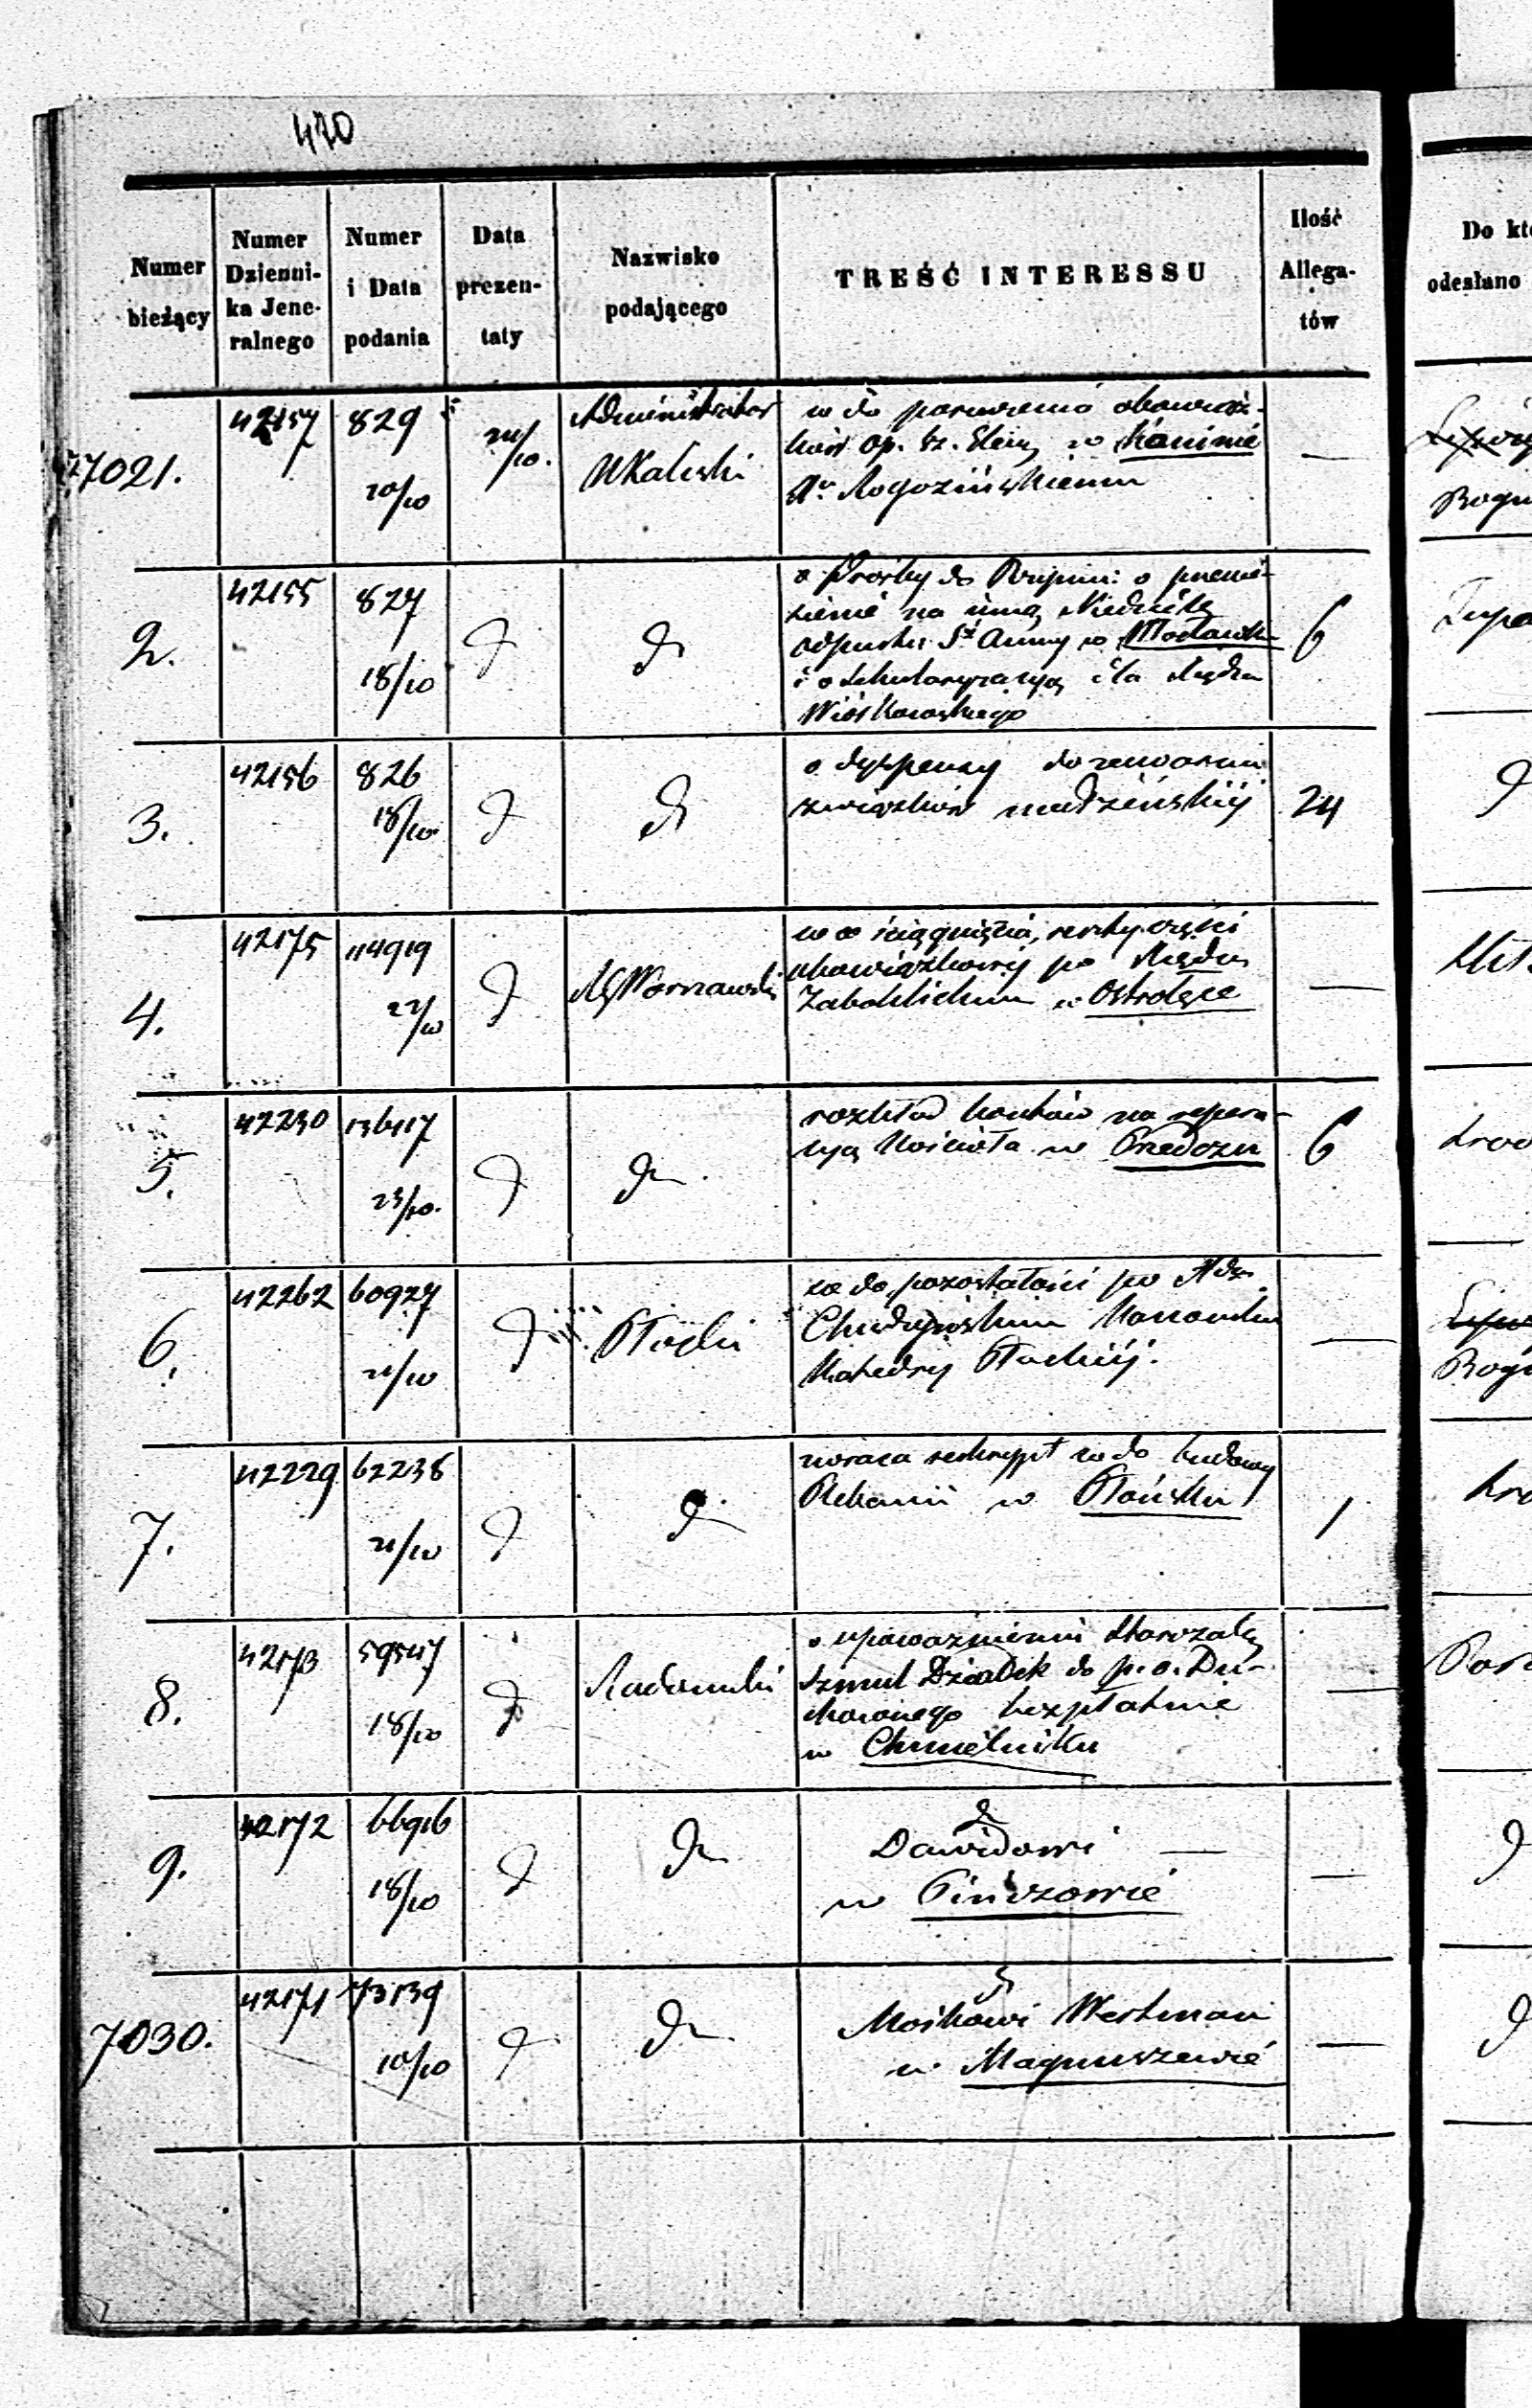 420
Numer bieżący
Numer Dzienni-
ka Jene-
ralnego
Numer i Data podania
Data prezen-
taty
Nazwisko podającego
TREŚĆ INTERESSU
Ilość Allega-
tów
Do kt
odesłano
7021.
42157
829
20/10
24/10.
Administrator
w do poruczenia obowiąz-
ków Op. Sz. w Kaninie
Xu Rogozińskiemu
—
Bogu
2.
42155
827
18/10
d
d
o Prośby do Rzymu: o przenie-
sienie na inną Niedzielę
odpustu Sw Anny w
i o sekularyzacyą dla Księdza
6
3.
42156
826
18/10
d
d
o dyspensy do zawarcia
związków małżeńskiej
24
d
4.
42175
114919
22/10
d
Warszawski
w do ściągnięcia, reszty części
obowiązkowej po Księdzu
Zaboklickim w Ostrołęce
—
5.
42230
136417
23/10.
d
do.
rozkład kosztów na repera-
cyą Kościoła w Przedczu
6
6.
42262
60927
21/10
d
Płocki
w do pozostałości po Xdzu
Kanoniku
Katedry Płockiej.
—
Bogu
7.
42229
62238
21/10
d
d
zwraca reskrypt w do budowy
Plebanii w Płońsku
1
8.
42173
59547
18/10
d
Radomski
o upoważnienie Starozak.
Szmul Dziadek do p. o. Du-
chownego bezpłatnie
w Chmielniku
—
9.
42172
66916
18/10
d
do
d
Dawidowi —
w Pińczowie
—
d
7030.
42171
73139
10/10
d
do
d
Mośkowi Westman
w Magnuszewie
—
d